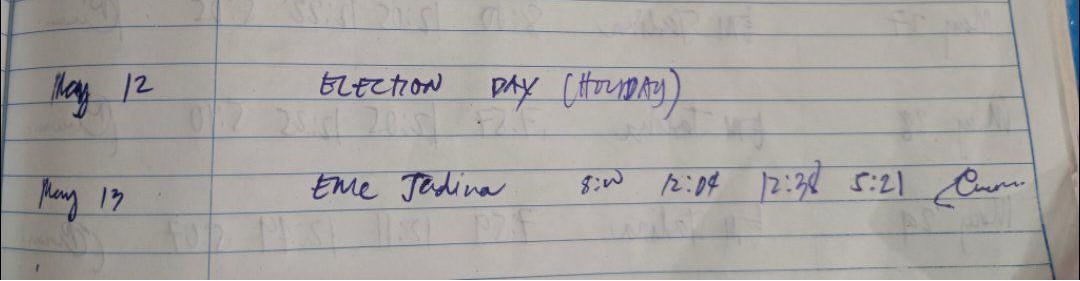 May 12 ELECTION DAY (HOLIDAY)
May 13 Eme Jadina 8:00 12:04 12:38 5:21